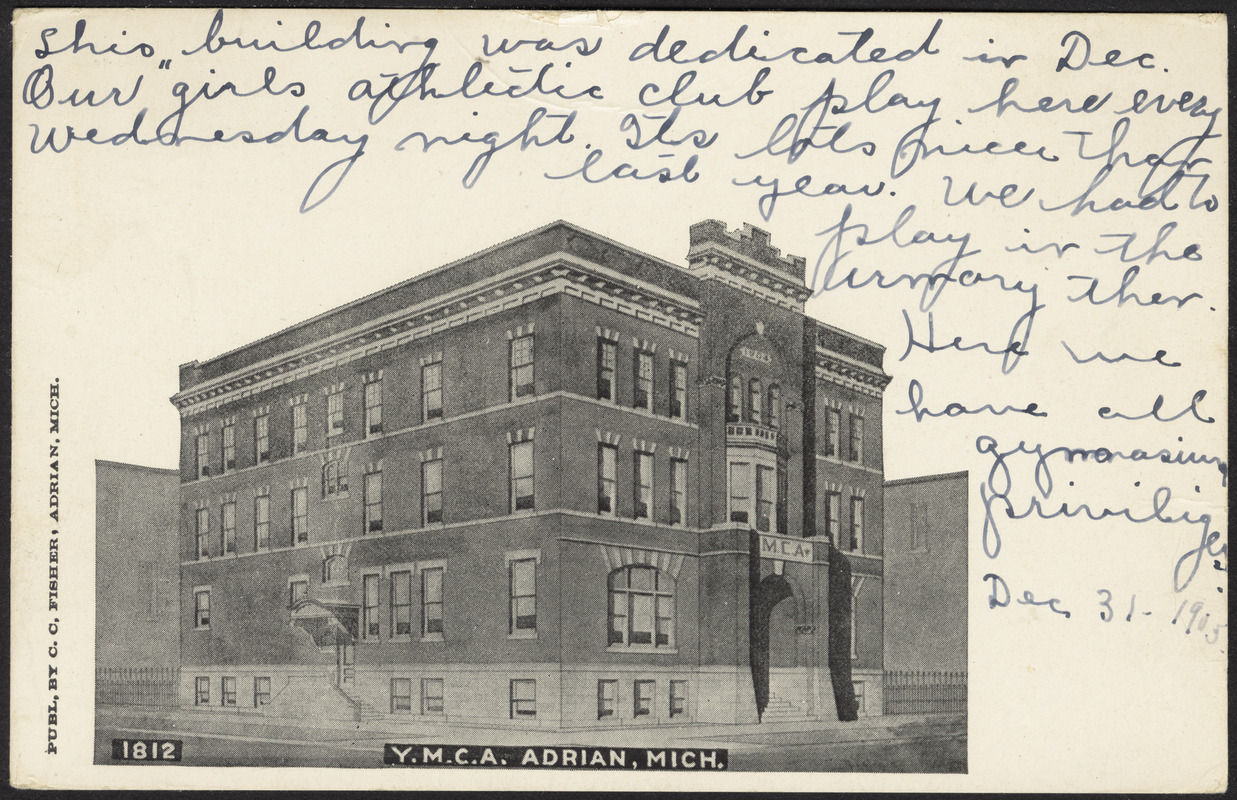 This building was dedicated in Dec.
Our "girls athletic club play here every
Wednesday night. Its lots nicer than
last year. We had to
play in the
armory then.
Here we
have all
gymnasium
priviliges.
Dec. 31- 1905.
1904
M.C.A.
PUBL, BY C. C, FISHER, ADRIAN, MICH.
1812
Y.M.C.A. ADRIAN, MICH.